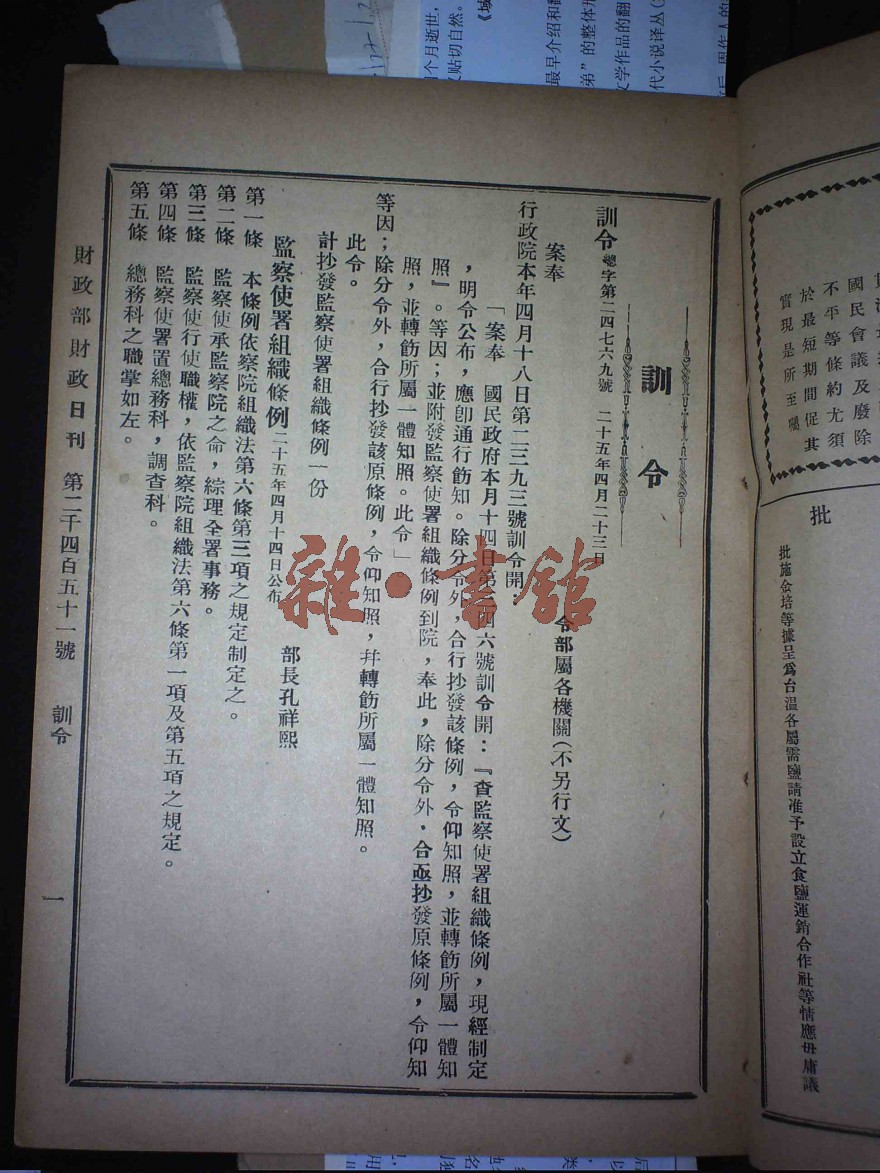 訓令
訓令 總字第二四七六九號 二十五年四月二十三日
令部屬各機關(不另行文)
案奉
行政院本年四月十八日第二三九三號訓令開:
「案奉 國民政府本月十四日第三四六號訓令開:『查監察使署組織條例,現經制定
,明令公布,應卽通行飭知。除分令外,合行抄發該條例,令仰知照,並轉飭所屬一體知
照』。等因;並附發監察使署組織條例到院,奉此,除分令外,合亟抄發原條例,令仰知
照,並轉飭所屬一體知照。此令」
等因;除分令外,合行抄發該原條例,令仰知照,幷轉飭所屬一體知照。
此令。
計抄發監察使署組織條例一份
部長孔祥熙
監察使署組織條例 二十五年四月十四日公布
第一條 本條例依察院組織法第六條第三項之規定制定之。
第二條 監察使承監察院之命,綜理全署事務。
第三條 監察使行使職權,依監察院組織法第六條第一項及第五項之規定。
第四條 監察使署置總務科,調查科。
第五條 總務科之職掌如左。
財政部財政日刊 第二千四百五十一號 訓令 一
國民會議及廢除
不平等條約尤須
於最短期間促其
實現是所至囑
批
批施金培等據呈爲台溫各屬需鹽請准予設立食鹽運銷合作社等情應毋庸議
雜·書館
个月逝世,
贴切自然。
最早介绍和
弟”的整体
文学作品的翻
代小说译丛